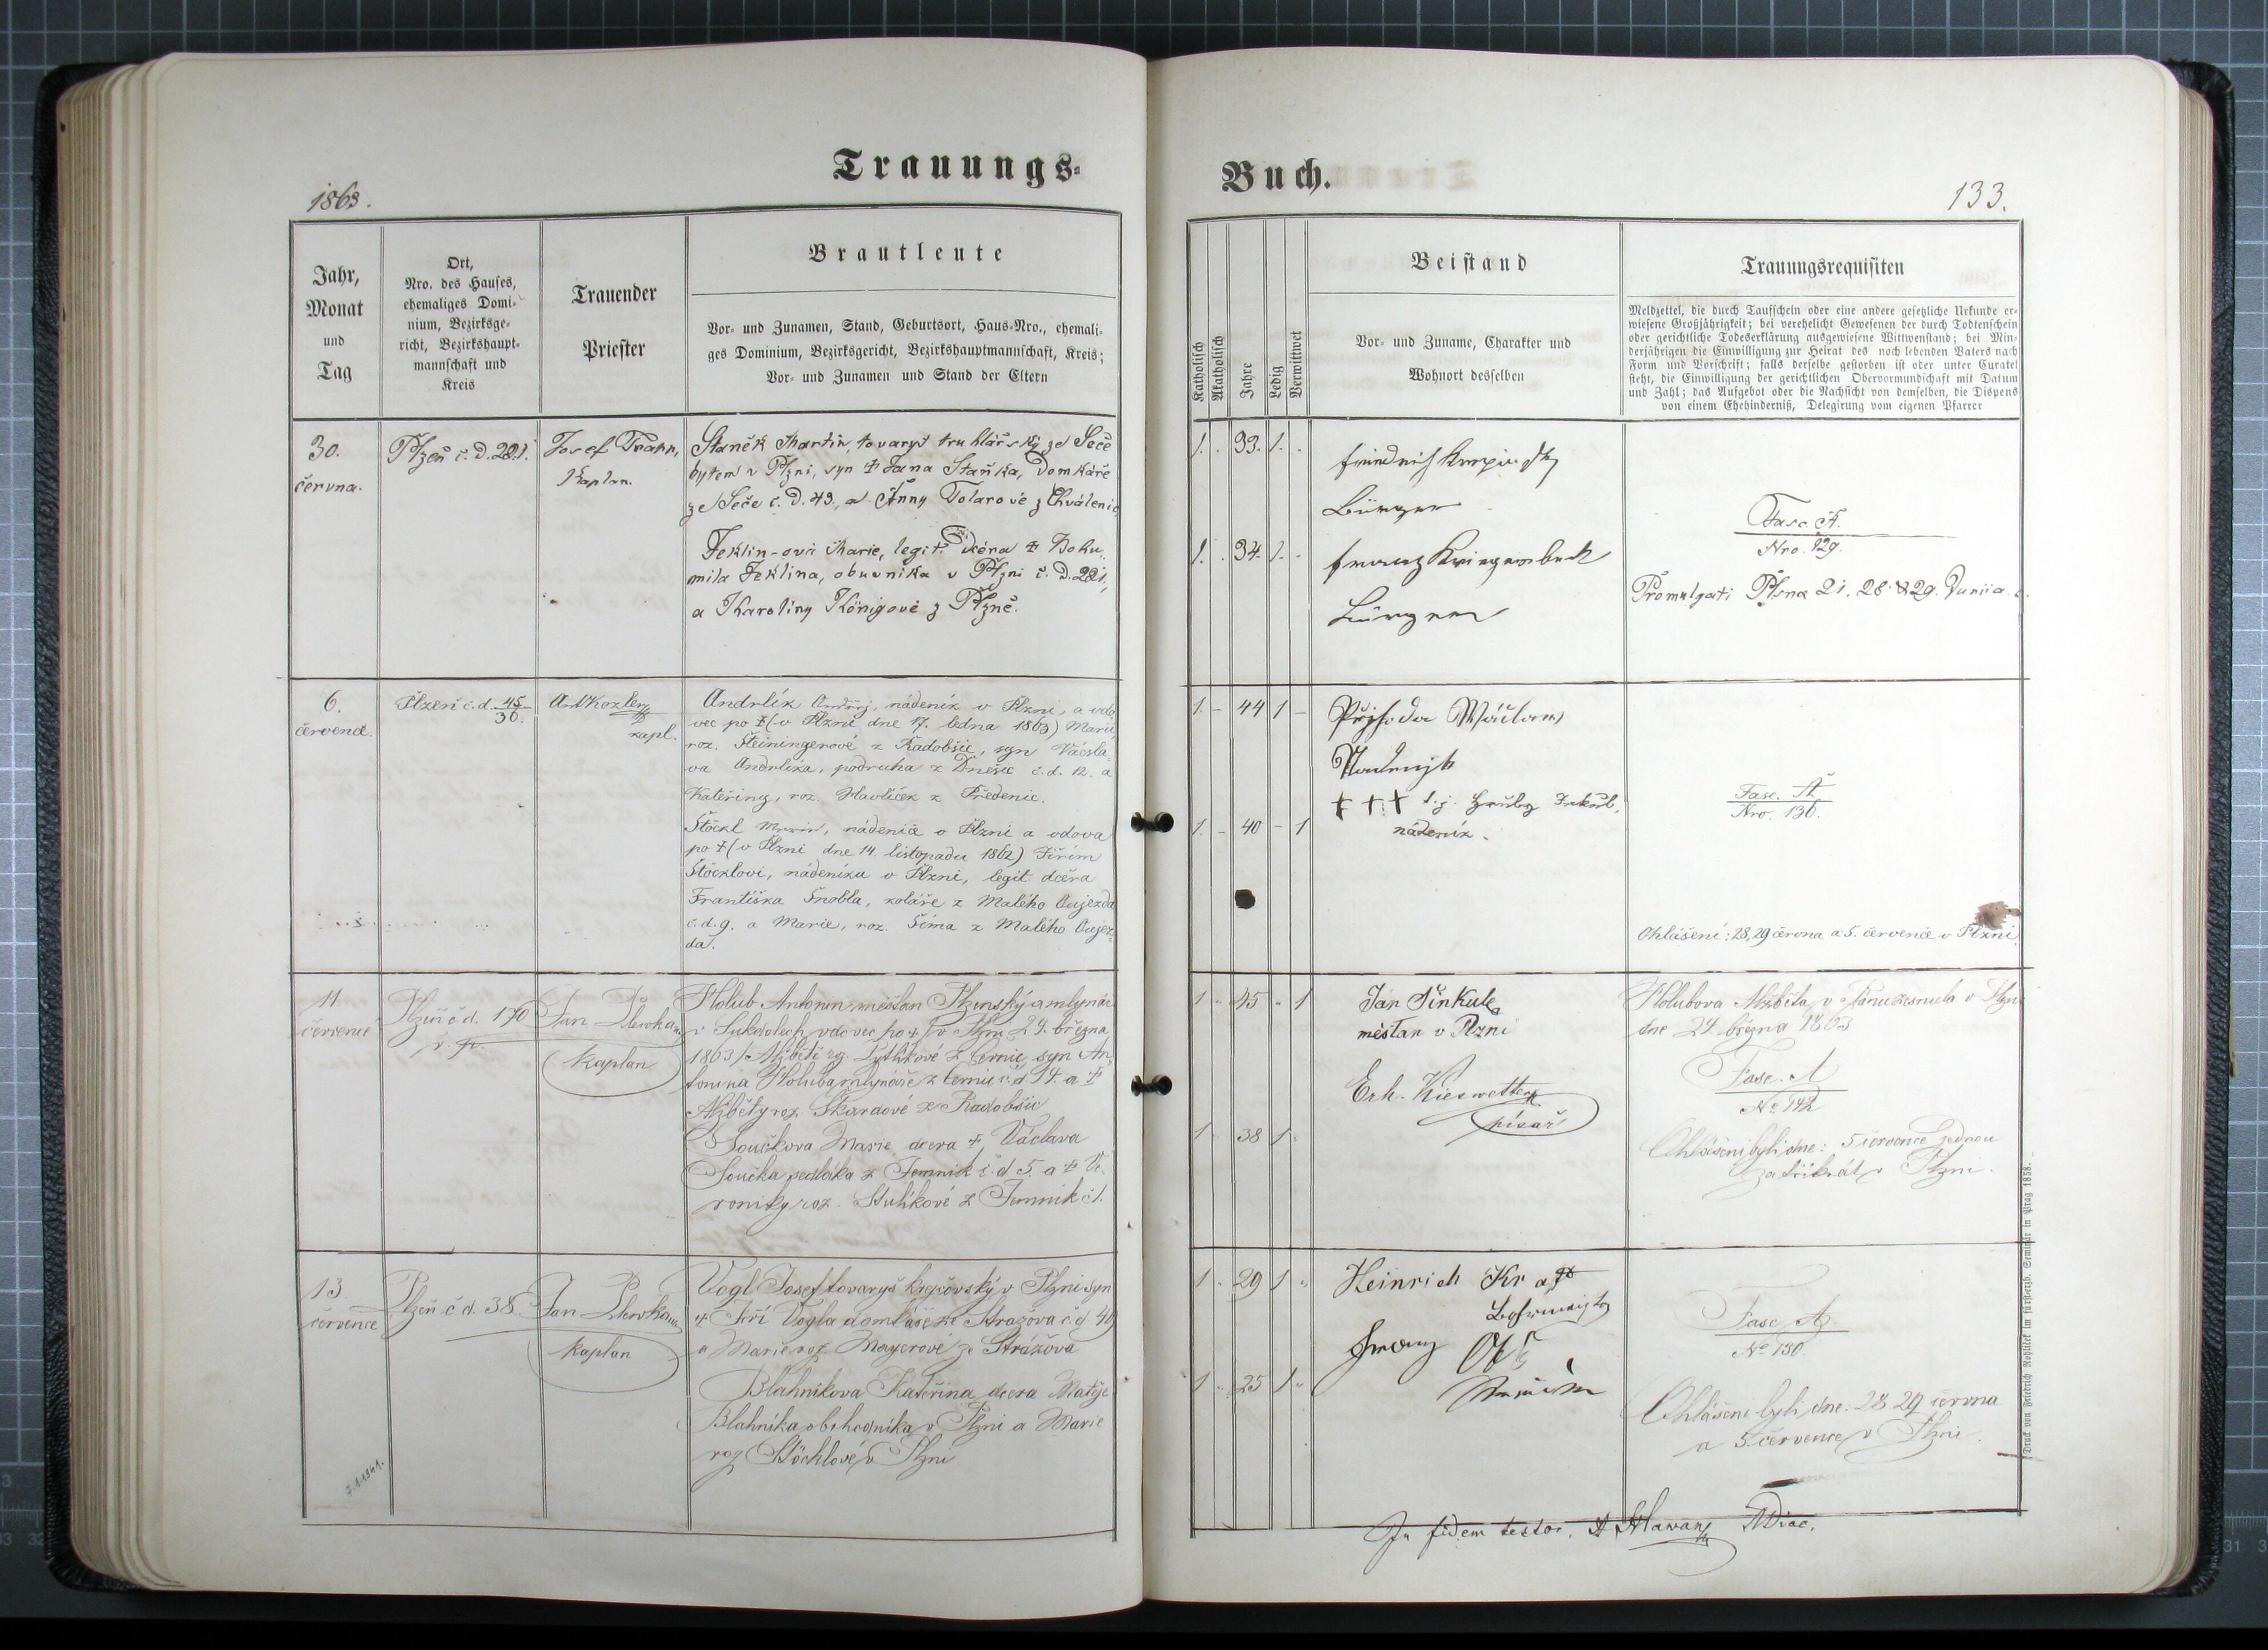 Trauungs-
1863.
Jahr,
Monat
und
Tag
Ort,
Nro. des Hauses,
ehemaliges Domi-
nium, Bezirksge-
richt, Bezirkshaupt-
mannschaft und
Kreis
Trauender
Priester
Brautleute
Vor- und Zunamen, Stand, Geburtsort, Haus-Nro., ehemali-
ges Dominium, Bezirksgericht, Bezirkshauptmannschaft, Kreis;
Vor- und Zunamen und Stand der Eltern
30.
června.
Plzeň č. d. 281.
Josef Trahn,
Kaplan.
Staněk Martin, tovaryš truhlářský ze Seče
bytem v Plzni, syn ‡ Jana Staňka, domkáře
ze Seče č. d. 43, a Anny Tolarové z Chválenic
Feklin-ová Marie, legit. dcéra ‡ Bohu-
mila Feklina, obuvníka v Plzni č. d. 281,
a Karoliny Königové z Plzně.
6.
července.
Plzeň č. d. 45/36.
Ant Kozler
kapl.
Andrlík Ondřej, nádeník v Plzni, a vdo-
vec po ‡ (v Plzni dne 17. ledna 1863) Marii,
roz. Steiningerové z Radobšic, syn Vácsla-
va Andrlíka, podruha z Dnešic č. d. 12. a
Kateřiny, roz. Havlíček z Předenic.
Stöckl Marie, nádenice v Plzni a vdova
po ‡ (v Plzni dne 14. listopadu 1862) Jiřím
Stöcklovi, nádeníku v Plzni, legit. dcéra
Františka Šnobla, koláře z Malého Oujezda
č. d. 9. a Marie, roz. Šíma z Malého Oujez-
da.
11
července
Plzeň č d. 170
Jan
Kaplan
Holub Antonín měšťan Plzenský a mlynář
v Sukdolech vdovec po ‡ (v Plzni 24. března
1863) Alžbětě roz. z Černic syn An-
tonína Holuba mlynáře z Černic č. d 14. a ‡
Alžběty roz Škardové z Radobšic
Součkova Marie dcera ‡ Václava
Součka sedláka z Temnik č. d 5. a ‡ Ve-
roniky roz. z Temnik č 1.
13
července
Plzeň č d. 38.
Jan
Kaplan
Vogl Josef tovaryš krejčovský v Plzni syn
‡ Jiří Vogla domkáře ze Stražova č d 49
a Marie roz Mayerové ze Strážova
Blahníkova Kateřina dcera Matěje
Blahníka obchodníka v Plzni a Marie
roz Stöcklové v Plzni
7.1.1941.
Buch.
133.
Katholisch
Akatholisch
Jahre
Ledig
Verwittwet
Beistand
Vor- und Zuname, Charakter und
Wohnort desselben
Trauungsrequisiten
Meldzettel, die durch Taufschein oder eine andere gesetzliche Urkunde er-
wiesene Großjährigkeit; bei verehelicht Gewesenen der durch Todtenschein
oder gerichtliche Todeserklärung ausgewiesene Wittwenstand; bei Min-
derjährigen die Einwilligung zur Heirat des noch lebenden Vaters nach
Form und Vorschrift; falls derselbe gestorben ist oder unter Curatel
steht, die Einwilligung der gerichtlichen Obervormundschaft mit Datum
und Zahl; das Aufgebot oder die Nachsicht von demselben, die Dispens
von einem Ehehinderniß, Delegirung vom eigenen Pfarrer
1. 33. 1.
Friedrich
Bürger
1. 34. 1.
Franz Kriegenbeck
Bürger
Fasc. A.
Nro. 129.
Promulgati Plsna 21. 28. & 29. Junii a. c.
1. 44 1
Přjhoda Wáclaw
+ + + t. j. Hrubý Jakub,
nádeník.
1. 40 1
Fasc. A
Nro. 136.
Ohlášení: 28, 29 června a 5. července v Plzni
1 45 1
Jan Šinkule
měšťan v Plzni
Erh. Kieswetter
písař
1 38 1
Holubova Alžběta v Pánu zesnula v Plzni
dne 24 března 1863
Fasc. A
No 142
Ohlášeni byli dne: 5 července jednou
za třikrát v Plzni.
1 29 1
Heinrich
Franz
1 25 1
Fasc. A.
No 130.
Ohlášeni byli dne: 28 29 června
a 5. července v Plzni.
In fidem testor. A Hlavan
Druck von Friedrich Rohlicek im fürsterzb. Seminär in Prag 1858.